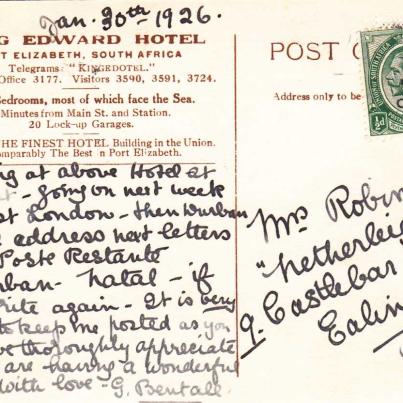 Jan. 30th 1926.
G EDWARD HOTEL
T ELIZABETH, SOUTH AFRICA
Telegrams "KINGEDOTEL."
Office 3177. Visitors 3590, 3591, 3724.
Bedrooms, most of which face the Sea.
Minutes from Main St. and Station.
20 Lock-up Garages.
THE FINEST HOTEL Building in the Union.
omparably The Best in Port Elizabeth.
ng at above Hotel at
- going on next week
st London - then Durban
address next letters
Poste Restante
ban - Natal - if
rite again - It is very
to keep me posted as you
ve thoroughly appreciate
are having a wonderful
with love - G. Bentall
POST C
Address only to be
½d
Mrs Robin
"Netherleig
9. Castlebar
Ealin